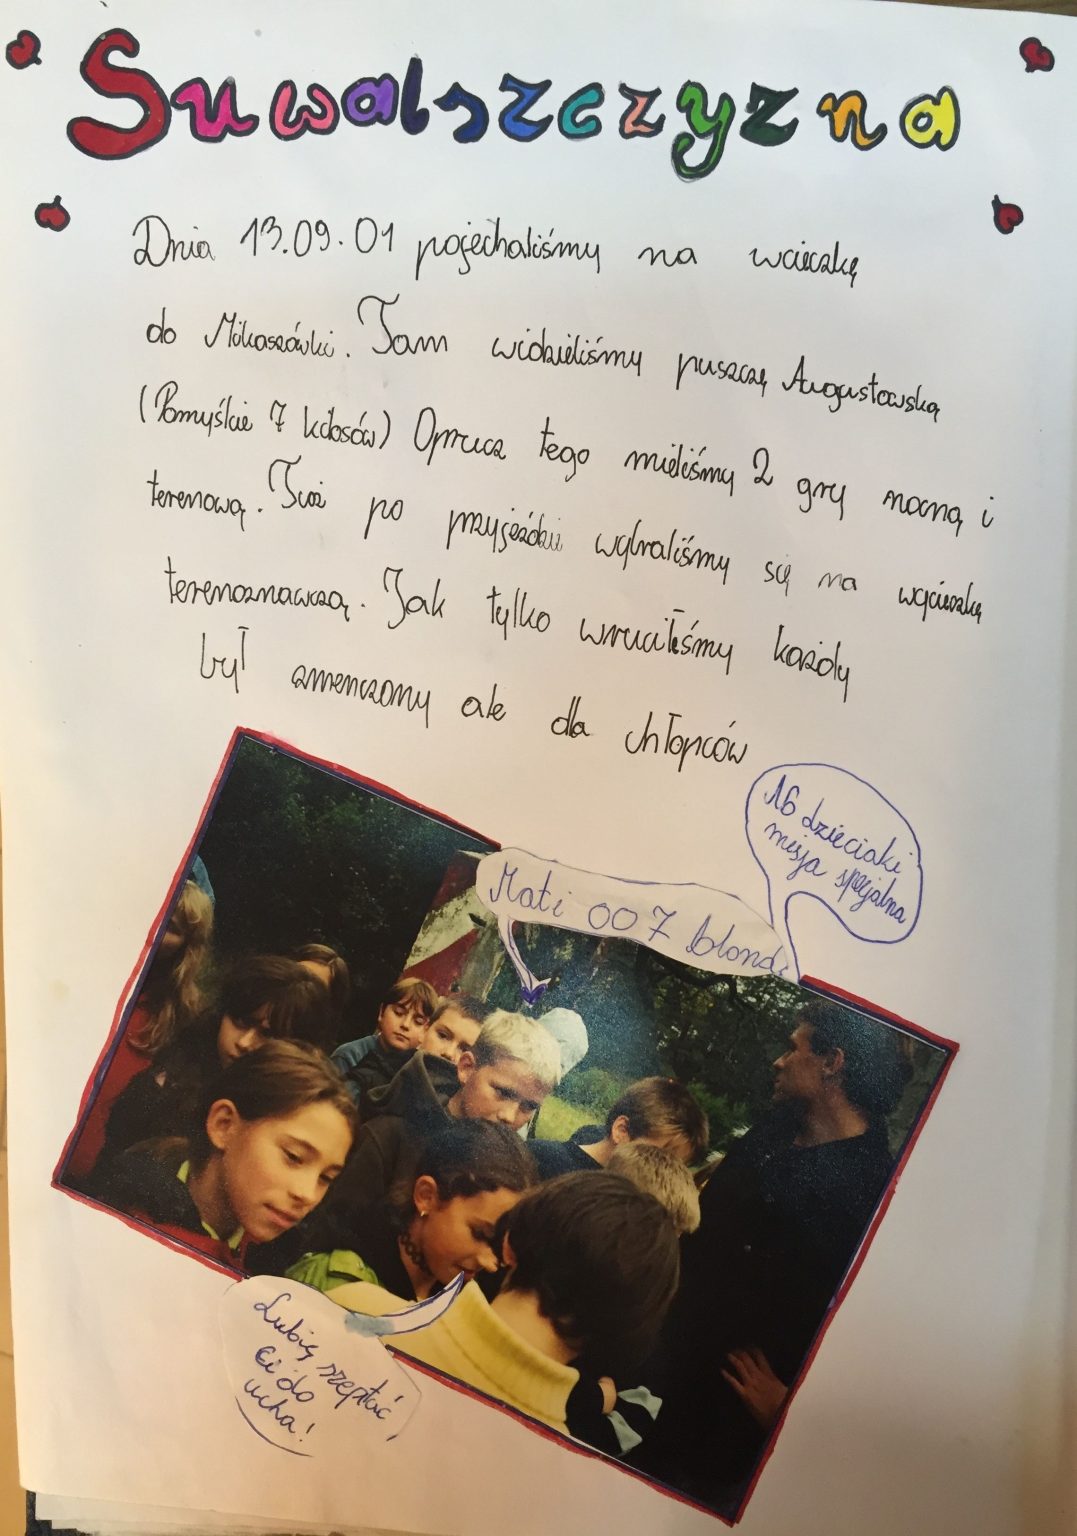 Suwalszczyzna
Dnia 13.09.01 pojechaliśmy na wcieczkę
do Mikaszówki. Tam widzieliśmy puszczę Augustowską
(Pomyślcie 7 kclosów) Oprucz tego mieliśmy 2 gry nocną i
terenową. Tuż po przyjeździe wybraliśmy się na wycieczkę
terenoznawczą. Jak tylko wruciliśmy każdy
był zmenczony ale dla chłopców
16 dzieciaki
misja specjalna
Mati 007 blond
Lubię szeptać
Ci do
ucha!